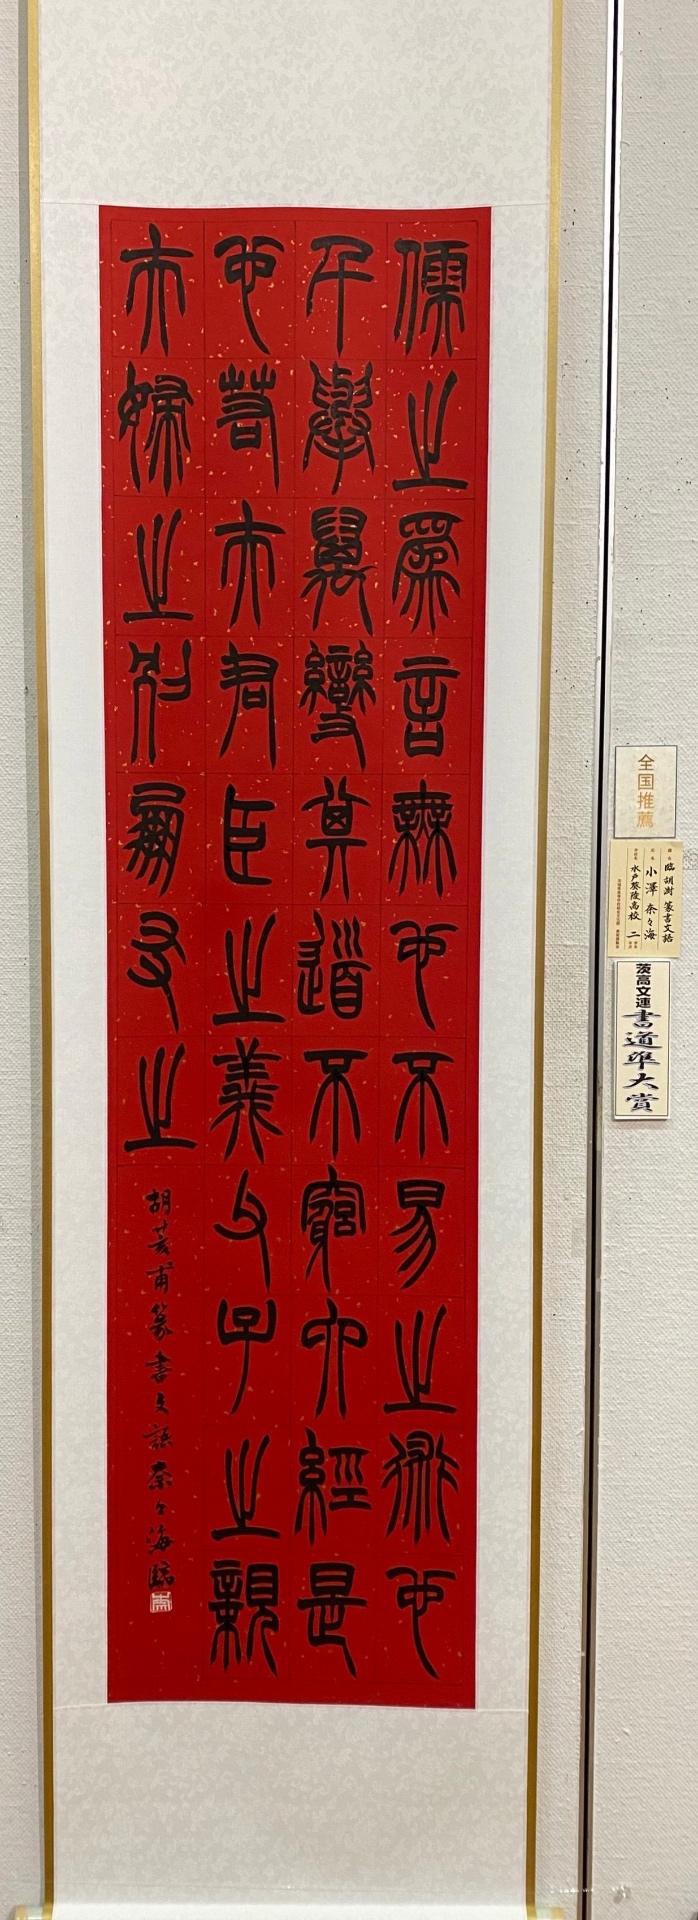 儒之爲言無也不易之術也
千舉萬變其道不窮六經是
也若夫君臣之義父子之親
夫婦之別朋友之
胡荄甫篆書文語奈々海臨
全国推薦
臨 胡澍 篆書文語
小澤 奈々海
水戸葵陵高校 二
茨高文連
書道準大賞